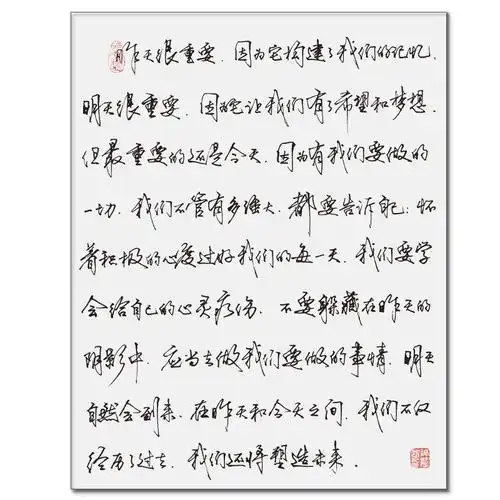 昨天很重要.因为它构建了我们的记忆.
明天很重要.因它让我们有了希望和梦想.
但最重要的还是今天.因为有我们要做的
一切.我们不管有多强大.都要告诉自己:怀
着积极的心度过好我们的每一天.我们要学
会给自己的心灵疗伤.不要躲藏在昨天的
阴影中.应当去做我们要做的事情.明天
自然会到来.在昨天和今天之间.我们不仅
经历了过去.我们还将塑造未来.